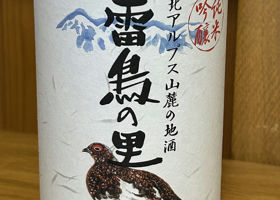 純米
吟醸
北アルプス山麓の地酒
雷鳥の里